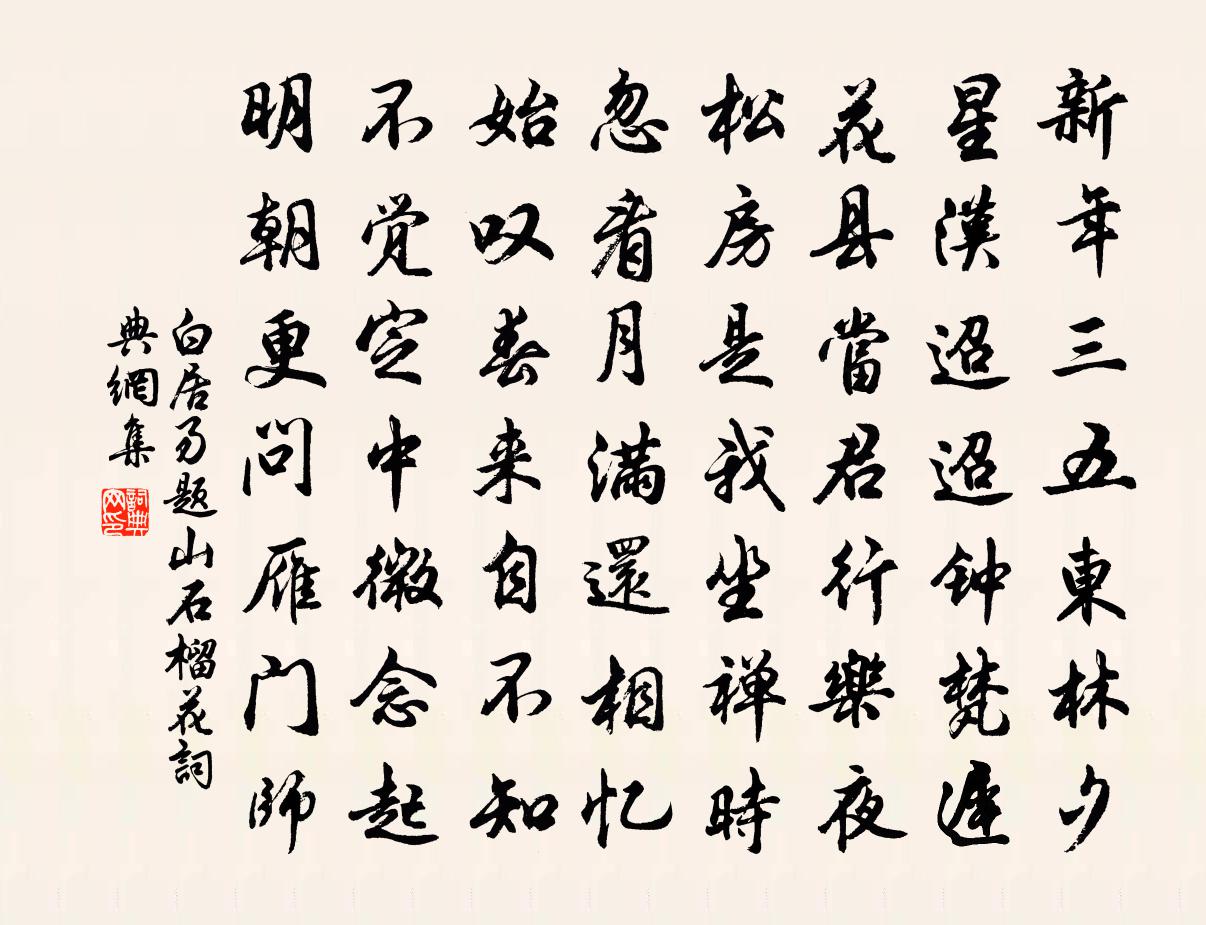 新年三五東林夕
星漢迢迢钟梵遲
花县當君行樂夜
松房是我坐禅時
忽看月満還相忆
始叹春来自不知
不覚定中微念起
明朝更问雁门師
白居易题山石榴花詞
典網集
詞典网印